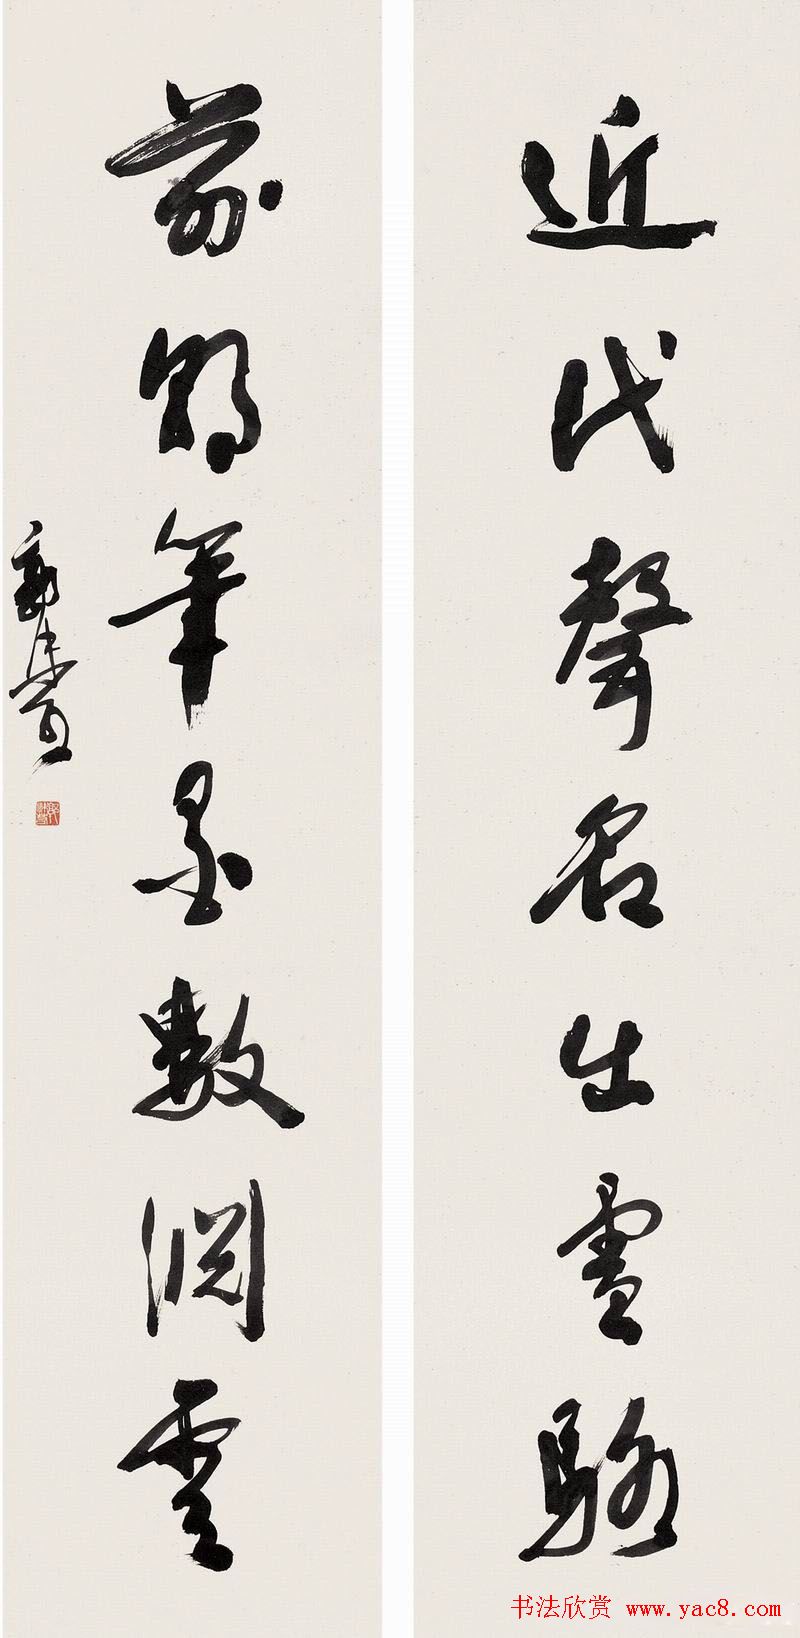 近代聲名出雪駒
前朝筆墨數淵雲
書法欣赏 www.yac8.com